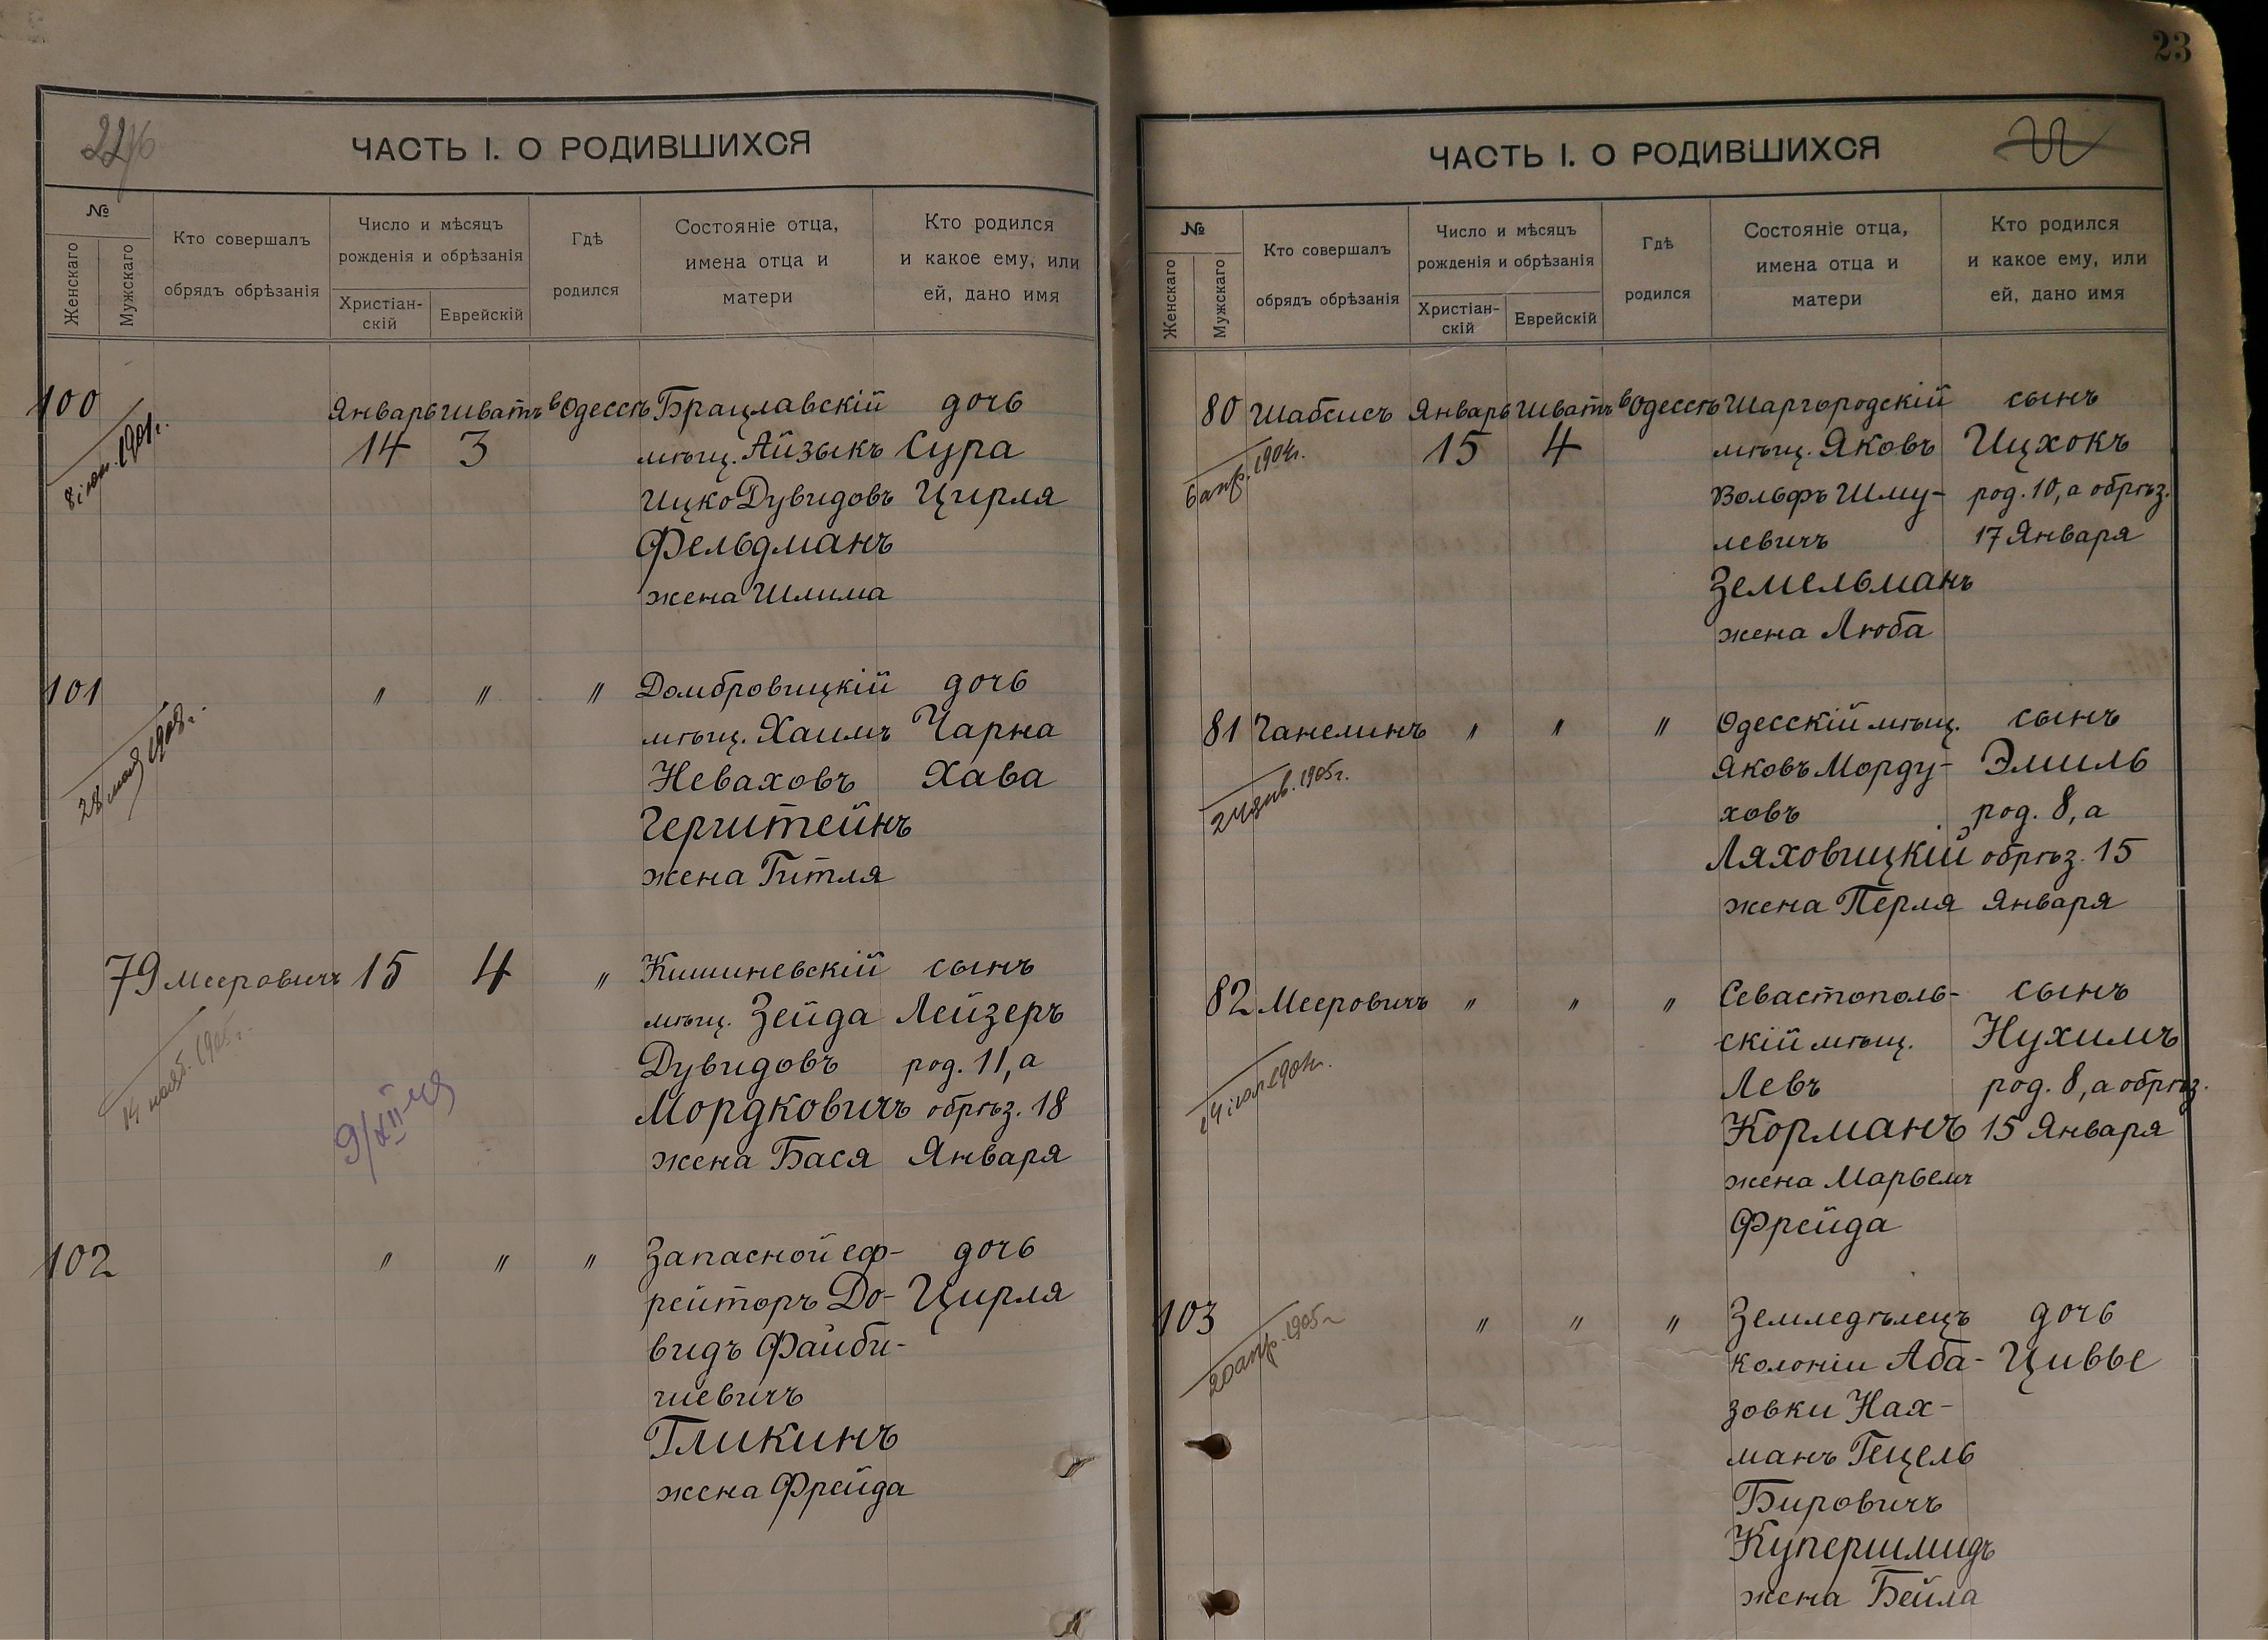 22
ЧАСТЬ I. О РОДИВШИХСЯ
№
Женскаго
Мужскаго
Кто совершалъ
обрядъ обрѣзанія
Число и мѣсяцъ
рожденія и обрѣзанія
Христіан-
скій
Еврейскій
Гдѣ
родился
Состояніе отца,
имена отца и
матери
Кто родился
и какое ему, или
ей, дано имя
100 Январь Шватъ в Одессѣ Брацлавскій дочь
14 3 мѣщ. Айзыкъ Сура
Ицко Дувидовъ Цирля
Фельдманъ
жена Шлима
101 " " " Домбровицкій дочь
28 мая 1908 г.
мѣщ. Хаимъ Чарна
Неваховъ Хава
Герштейнъ
жена Гитля
79 Мееровичъ 15 4 " Кишиневскій сынъ
14 нояб. 1905 г.
мѣщ. Зейда Лейзеръ
Дувидовъ род. 11, а
Мордковичъ обрѣз. 18
жена Бася Января
102 " " " Запасной еф- дочь
рейторъ До- Цирля
видъ Файби-
шевичъ
Гликинъ
жена Фрейда
23
ЧАСТЬ I. О РОДИВШИХСЯ
№
Женскаго
Мужскаго
Кто совершалъ
обрядъ обрѣзанія
Число и мѣсяцъ
рожденія и обрѣзанія
Христіан-
скій
Еврейскій
Гдѣ
родился
Состояніе отца,
имена отца и
матери
Кто родился
и какое ему, или
ей, дано имя
80 Шабсисъ Январь Шватъ в Одессѣ Шаргородскій сынъ
6 апр. 1904 г.
15 4 мѣщ. Яковъ Ицхокъ
Вольфъ Шму- род. 10, а обрѣз.
левичъ 17 Января
Земельманъ
жена Люба
81 Ганелинъ " " " Одесскій мѣщ. сынъ
янв. 1905 г.
Яковъ Морду- Эмиль
ховъ род. 8, а
Ляховицкій обрѣз. 15
жена Перля Января
82 Мееровичъ " " " Севастополь- сынъ
скій мѣщ. Нухимъ
Левъ род. 8, а обрѣз.
Корманъ 15 Января
жена Марьемъ
Фрейда
103 " " " Земледѣлецъ дочь
20 апр. 1905 г.
колоніи Аба- Цивье
зовки Нах-
манъ Гецель
Бировичъ
Купершмидъ
жена Бейла